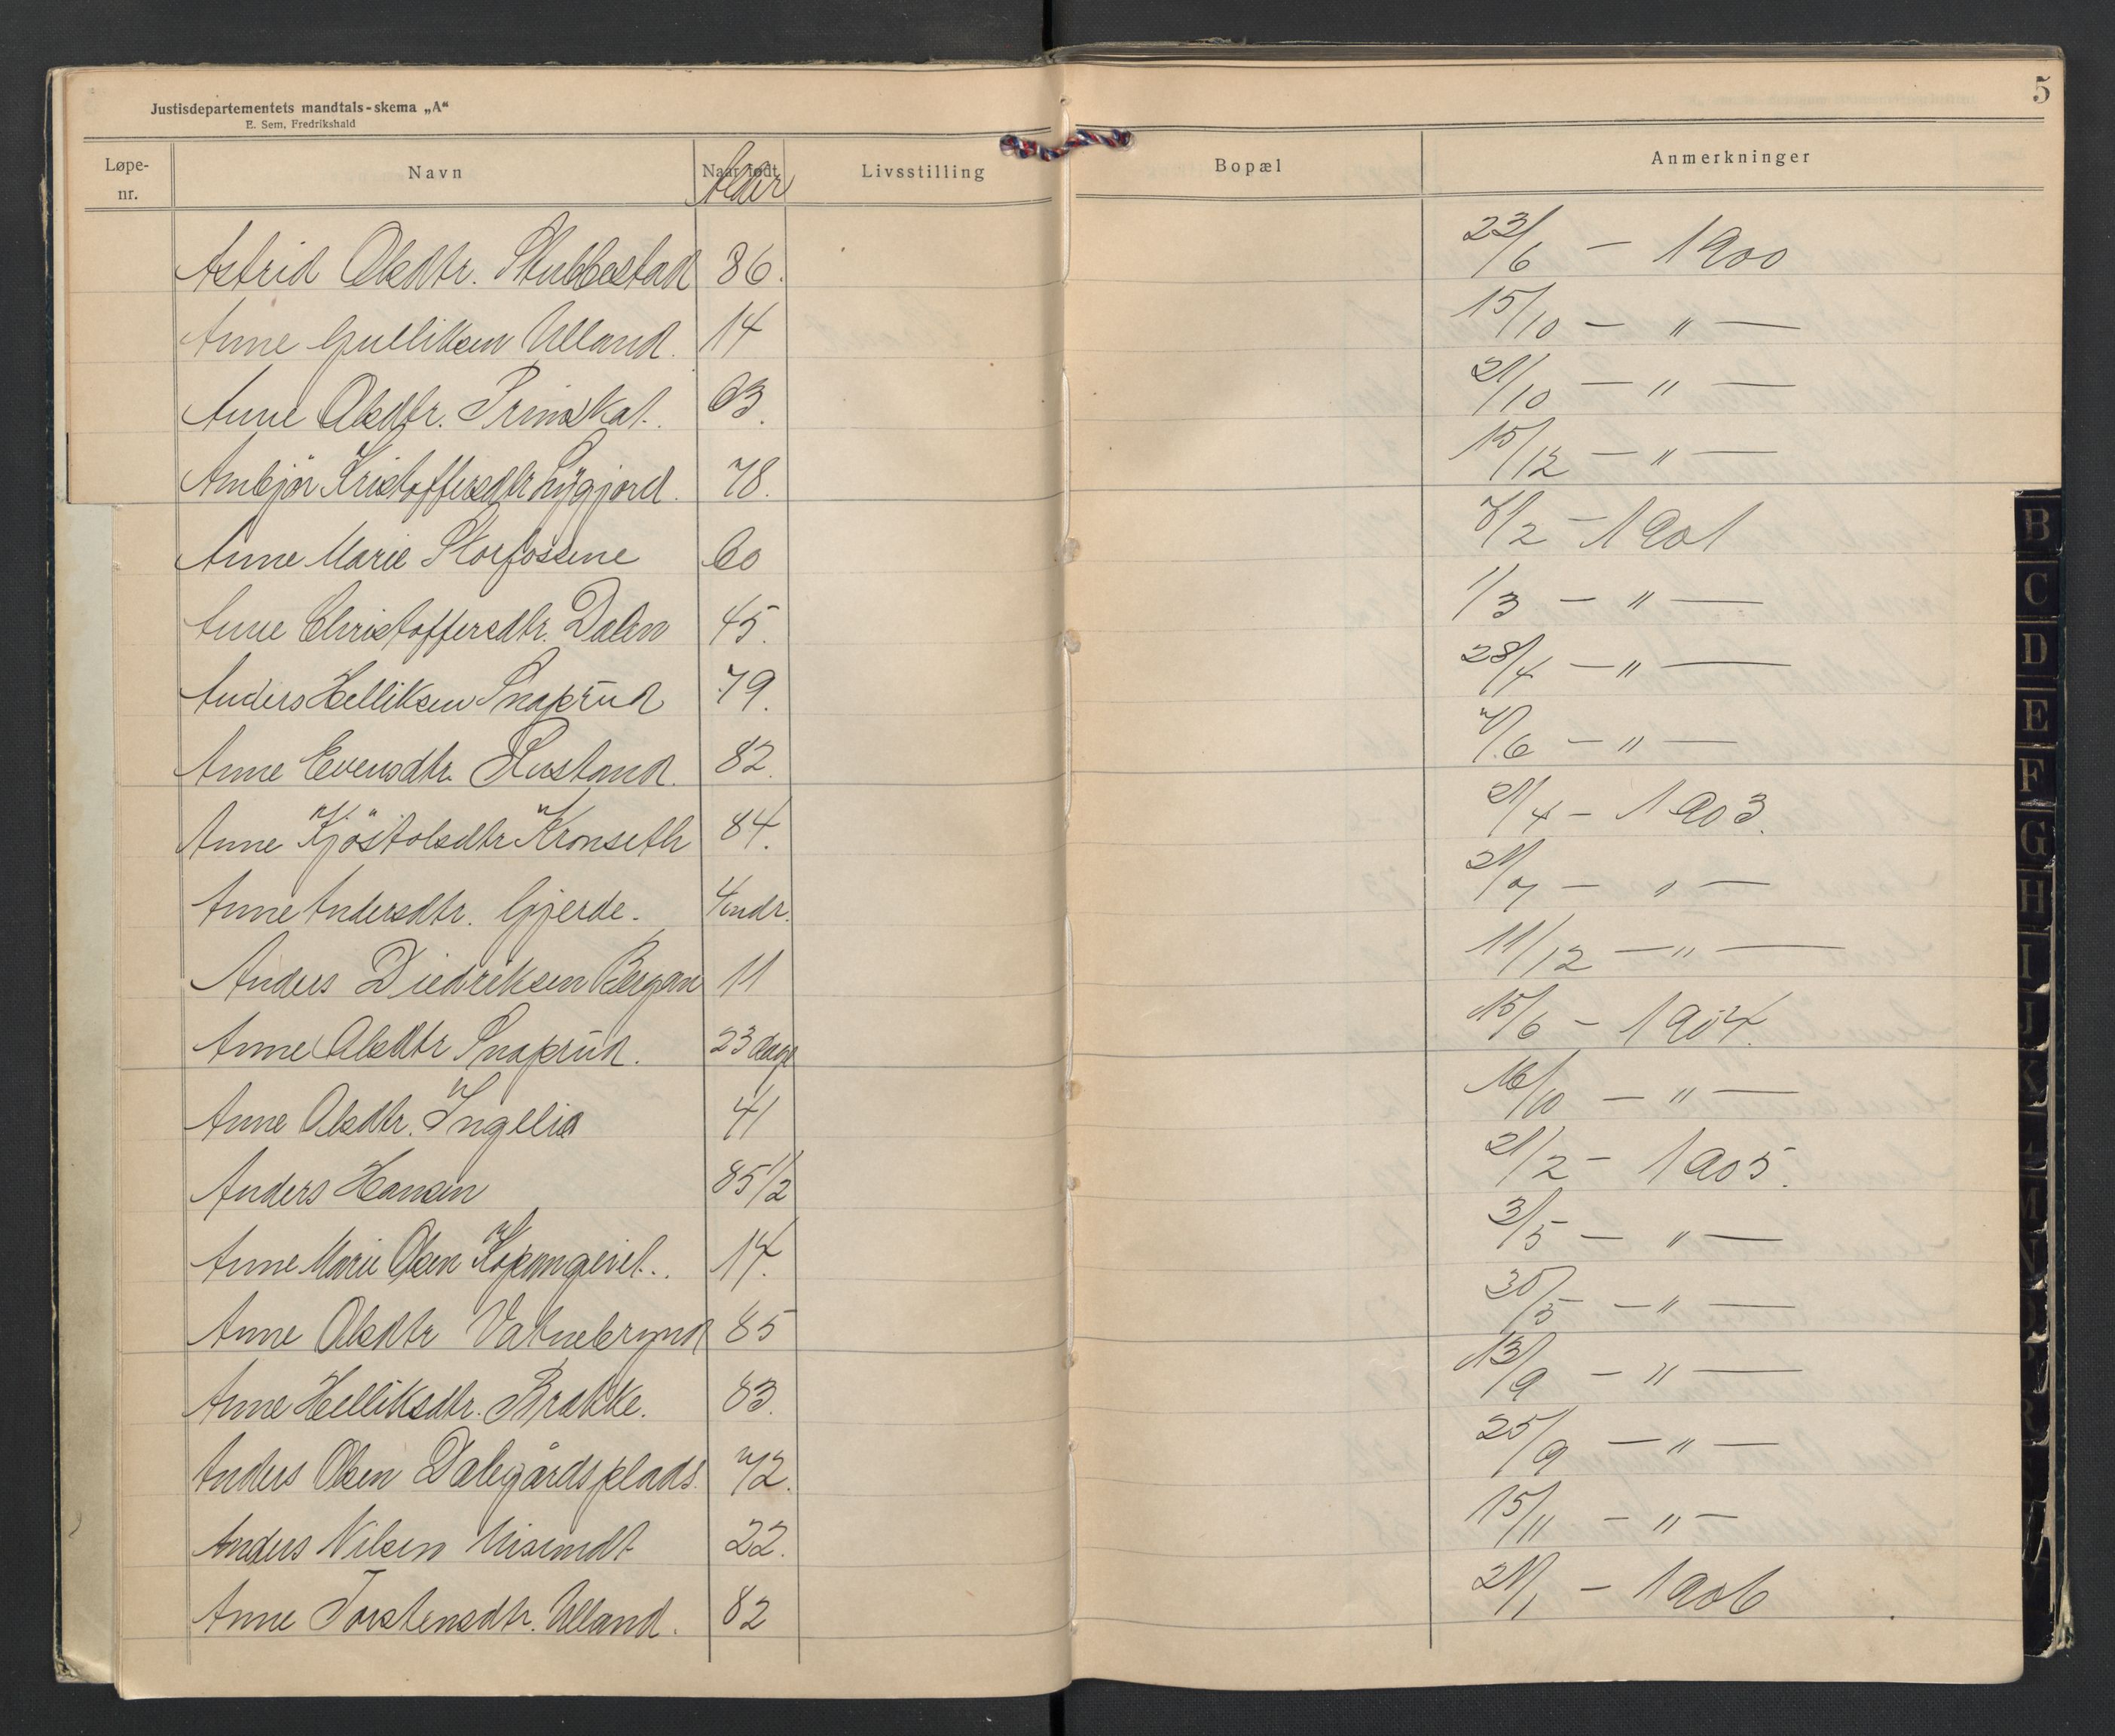 5
Justisdepartementets mandtals-skema „A“
E. Sem, Fredrikshald
Løpe-nr. Navn Naar født Alder Livsstilling Bopæl Anmerkninger
Astrid Olsdtr. Stubbestad 86. 23/6 — 1900
Anne Gulliksen Ulland. 14 15/10 — " —
Anne Olsdtr. Prinskat. 63. 21/10 — " —
Ambjör Kristoffersdtr Lÿgjord. 78. 15/12 — " —
Anne Marie Storfossene 60 7/2 — 1901
Anne Christoffersdtr. Dalen 45. 1/3 — " —
Anders Helliksen Snaprud 79. 28/4 — " —
Anne Evensdtr. Rustand. 82. 7/6 — " —
Anne Kjöstolsdtr Kronseth 84. 21/4 — 1903.
Anne Andersdtr. Gjerde. 4 mdr. 21/7 — " —
Anders Diedriksen Bergan 11 11/12 — " —
Anne Olsdtr Snaprud. 23 dage 15/6 — 1904.
Anne Olsdtr. Ingelia 41 16/10 — " —
Anders Hansen 85 1/2 21/2 — 1905.
Anne Marie Olsen Kopangeiet. 14. 3/5 — " —
Anne Olsdtr Vatnebrynd 85 30/5 — " —
Anne Helliksdtr. Brække. 83. 13/9 — " —
Anders Olsen Dalegårdsplads. 72. 25/9 — " —
Anders Nilsen 22. 15/11 — " —
Anne Torstensdtr. Ulland. 82 21/1 — 1906
B
C
D
E
F
G
H
I
J
K
L
M
N